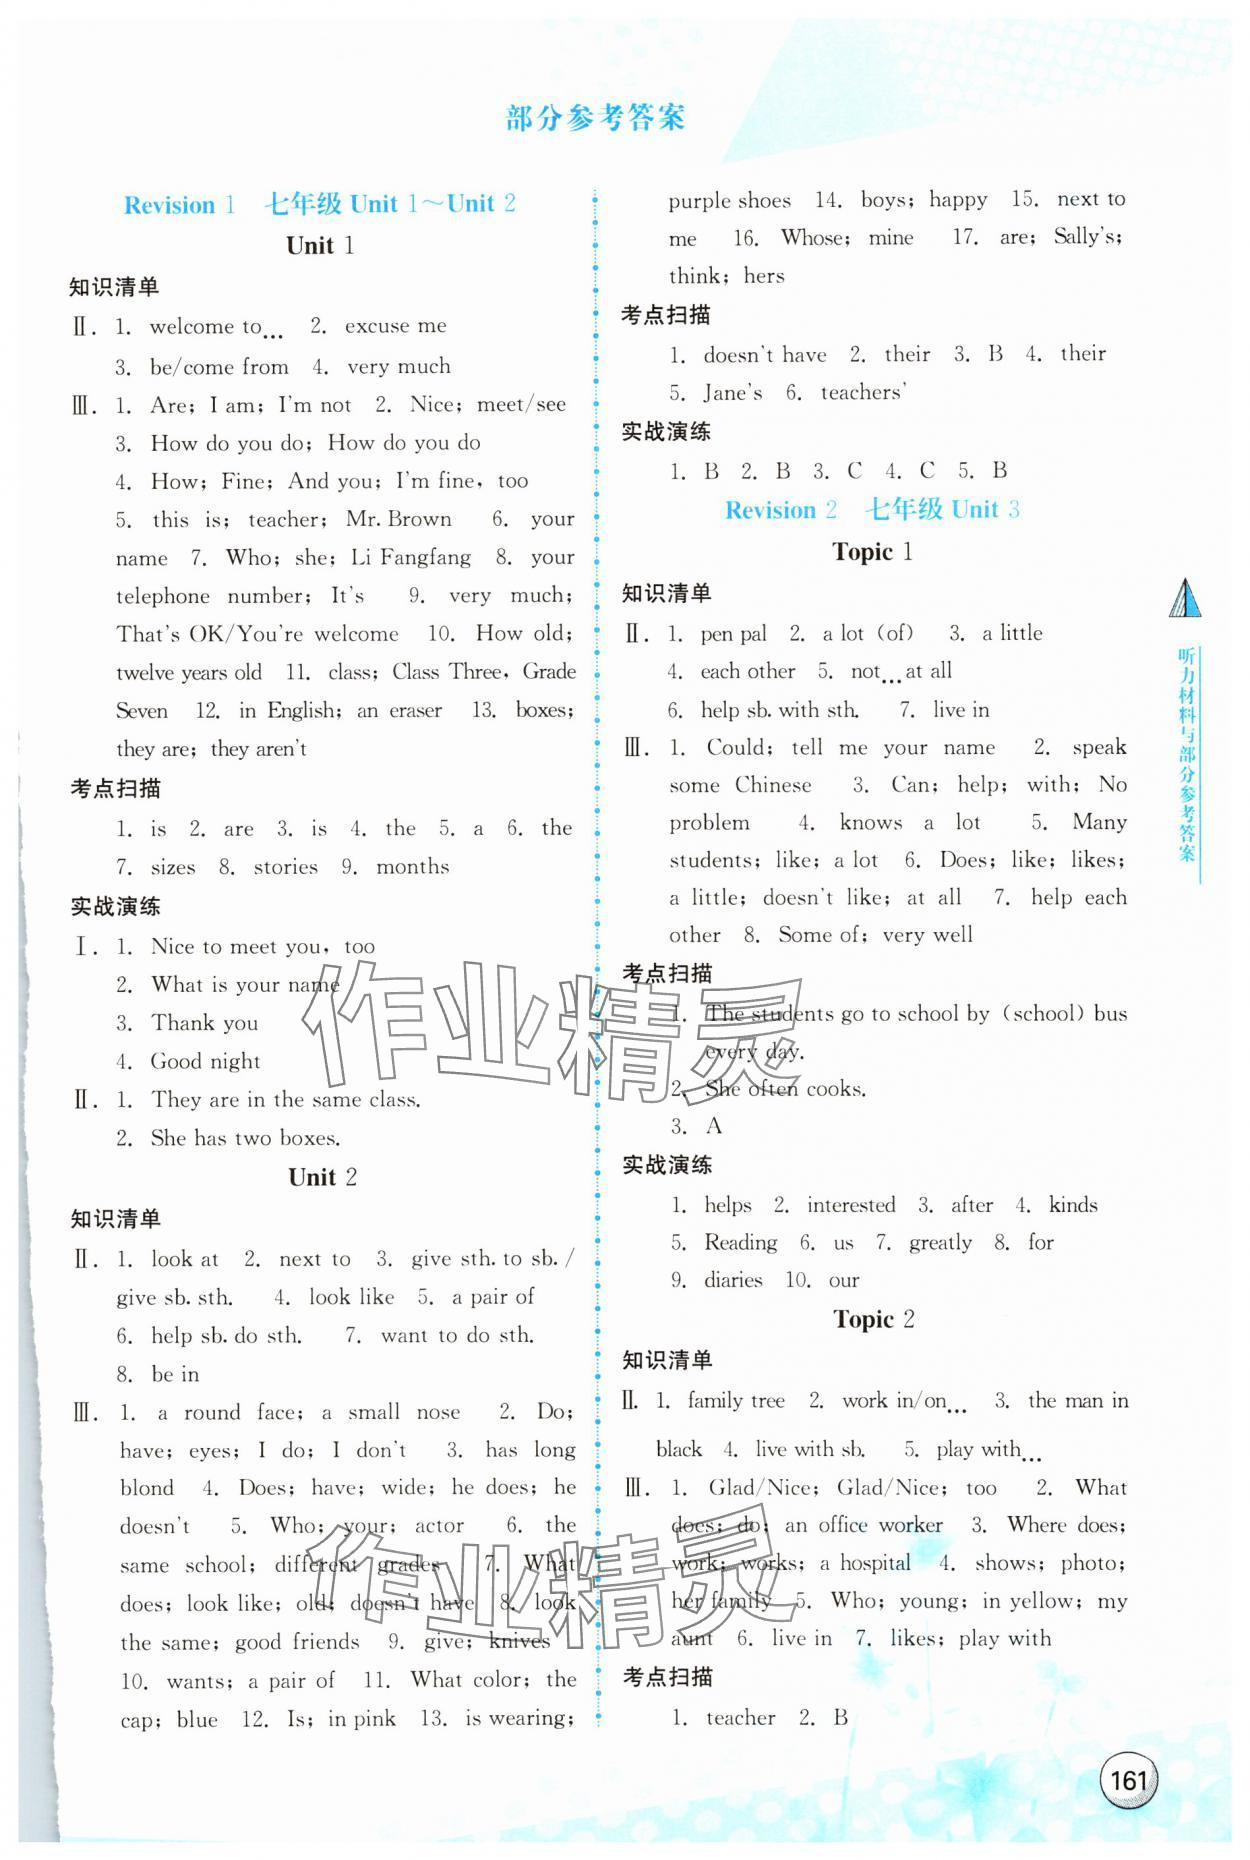 部分参考答案
Revision 1 七年级 Unit 1～Unit 2
Unit 1
知识清单
Ⅱ. 1. welcome to… 2. excuse me
3. be/come from 4. very much
Ⅲ. 1. Are; I am; I'm not 2. Nice; meet/see
3. How do you do; How do you do
4. How; Fine; And you; I'm fine, too
5. this is; teacher; Mr. Brown 6. your
name 7. Who; she; Li Fangfang 8. your
telephone number; It's 9. very much;
That's OK/You're welcome 10. How old;
twelve years old 11. class; Class Three, Grade
Seven 12. in English; an eraser 13. boxes;
they are; they aren't
考点扫描
1. is 2. are 3. is 4. the 5. a 6. the
7. sizes 8. stories 9. months
实战演练
Ⅰ. 1. Nice to meet you, too
2. What is your name
3. Thank you
4. Good night
Ⅱ. 1. They are in the same class.
2. She has two boxes.
Unit 2
知识清单
Ⅱ. 1. look at 2. next to 3. give sth. to sb. /
give sb. sth. 4. look like 5. a pair of
6. help sb. do sth. 7. want to do sth.
8. be in
Ⅲ. 1. a round face; a small nose 2. Do;
have; eyes; I do; I don't 3. has long
blond 4. Does; have; wide; he does; he
doesn't 5. Who; your; actor 6. the
same school; different grades 7. What
does; look like; old; doesn't have 8. look
the same; good friends 9. give; knives
10. wants; a pair of 11. What color; the
cap; blue 12. Is; in pink 13. is wearing;
purple shoes 14. boys; happy 15. next to
me 16. Whose; mine 17. are; Sally's;
think; hers
考点扫描
1. doesn't have 2. their 3. B 4. their
5. Jane's 6. teachers'
实战演练
1. B 2. B 3. C 4. C 5. B
Revision 2 七年级 Unit 3
Topic 1
知识清单
Ⅱ. 1. pen pal 2. a lot (of) 3. a little
4. each other 5. not…at all
6. help sb. with sth. 7. live in
Ⅲ. 1. Could; tell me your name 2. speak
some Chinese 3. Can; help; with; No
problem 4. knows a lot 5. Many
students; like; a lot 6. Does; like; likes;
a little; doesn't like; at all 7. help each
other 8. Some of; very well
考点扫描
1. The students go to school by (school) bus
every day.
2. She often cooks.
3. A
实战演练
1. helps 2. interested 3. after 4. kinds
5. Reading 6. us 7. greatly 8. for
9. diaries 10. our
Topic 2
知识清单
Ⅱ. 1. family tree 2. work in/on… 3. the man in
black 4. live with sb. 5. play with…
Ⅲ. 1. Glad/Nice; Glad/Nice; too 2. What
does; do; an office worker 3. Where does;
work; works; a hospital 4. shows; photo;
her family 5. Who; young; in yellow; my
aunt 6. live in 7. likes; play with
考点扫描
1. teacher 2. B
听力材料与部分参考答案
161
作业精灵
作业精灵